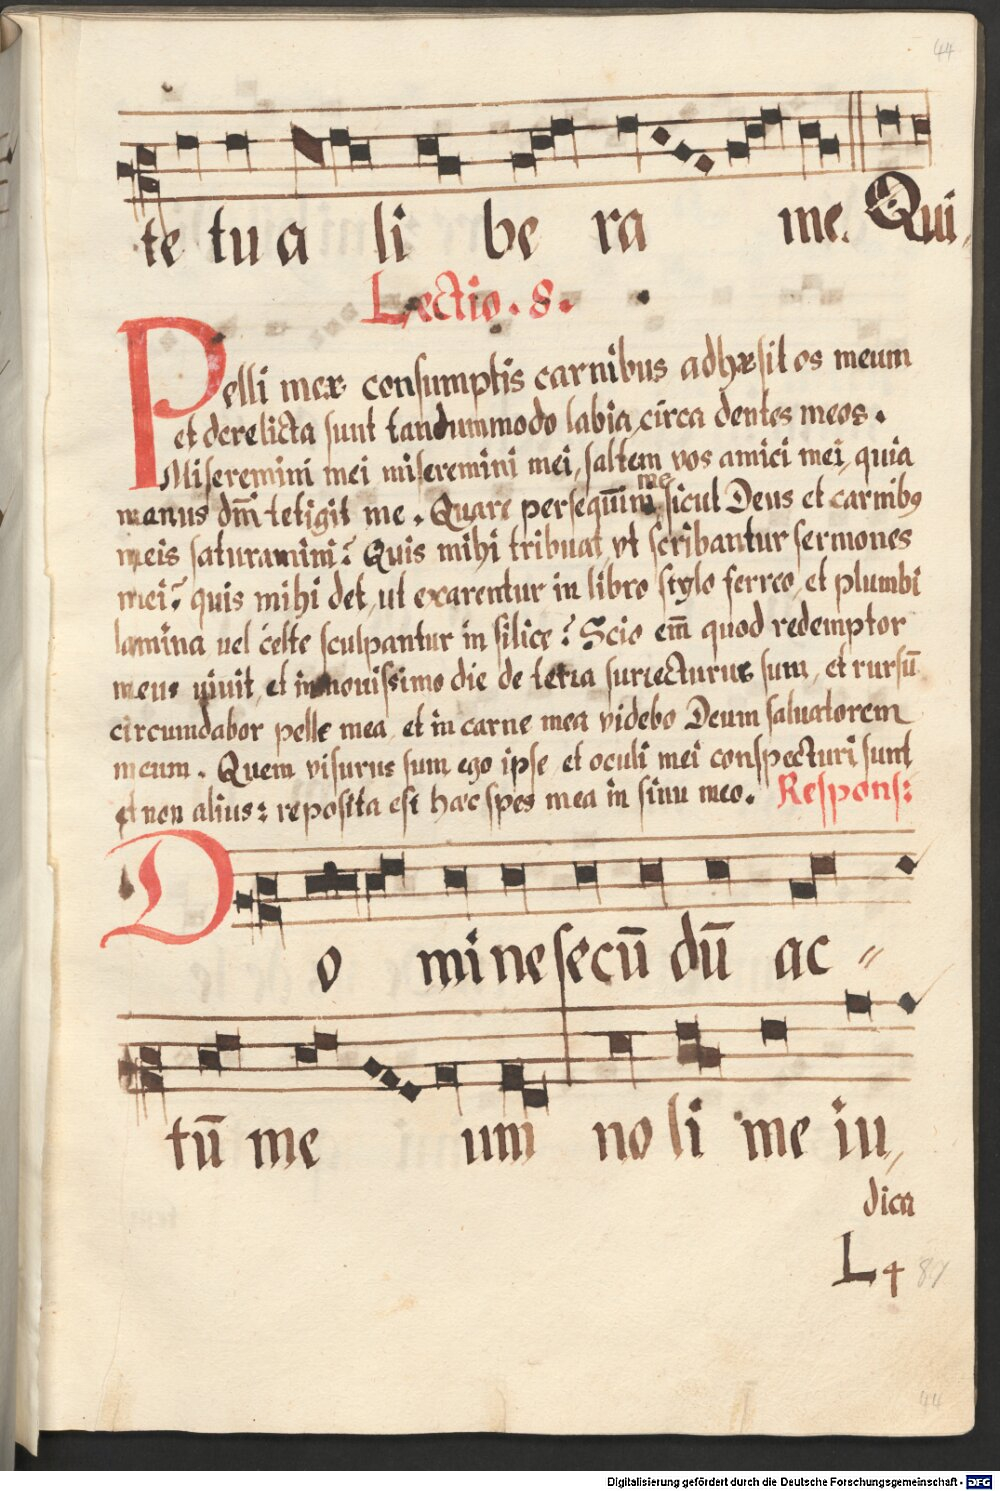 44
te tu a li be ra me. Qui,
Lectio. 8.
Pelli meæ consumptis carnibus adhæsit os meum
et derelicta sunt tandummodo labia circa dentes meos.
Miseremini mei miseremini mei, saltem vos amici mei, quia
manus dm̄ tetigit me. Quare persequīm me sicut Deus et carnibꝯ
meis saturamini? Quis mihi tribuat, vt scribantur sermones
mei? quis mihi det, ut exarentur in libro stylo ferreo, et plumbi
lamina uel celte sculpantur in silice? Scio em̄ quod redemptor
meus viuit, et in nouissimo die de terra surrecturus sum, et rursū
circumdabor pelle mea, et in carne mea videbo Deum saluatorem
meum. Quem visurus sum ego ipse, et oculi mei conspecturi sunt
et non alius: reposita est hæc spes mea in sinu meo. Respons:
Do mi ne se cū dū ac〃
tū me um no li me iu,,
dica
L4 87
44
Digitalisierung gefördert durch die Deutsche Forschungsgemeinschaft - DFG